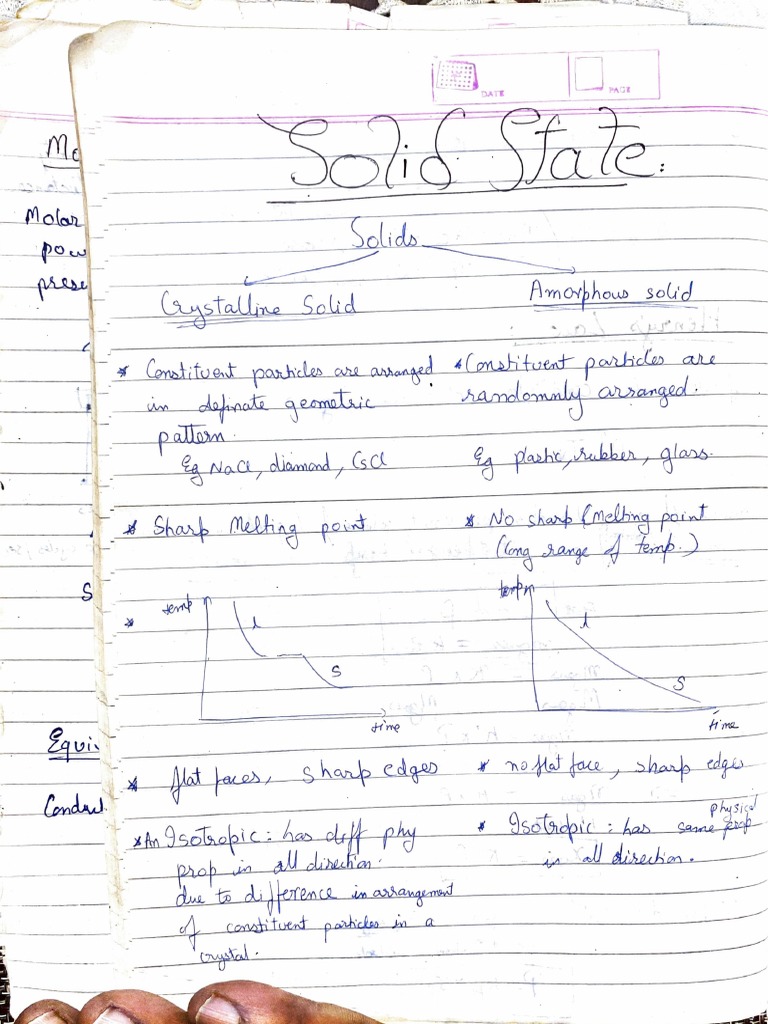 DATE
PAGE
Solid State.
Solids
Crystalline Solid
Amorphous solid
* Constituent particles are arranged
in definate geometric
pattern.
Eg NaCl, diamond, CsCl
* Constituent particles are
randomnly arranged.
Eg plastic, rubber, glass.
* Sharp Melting point
* No sharp (Melting point
(long range of temp.)
* temp
l
S
time
temp
l
S
time
* flat faces, sharp edges
* no flat face, sharp edges
* An Isotropic : has diff phy
prop in all direction.
due to difference in arrangement
of constituent particles in a
crystal.
* Isotropic : has same physical prop
in all direction.
Molar
pow
prese
S
Equi
Conduc